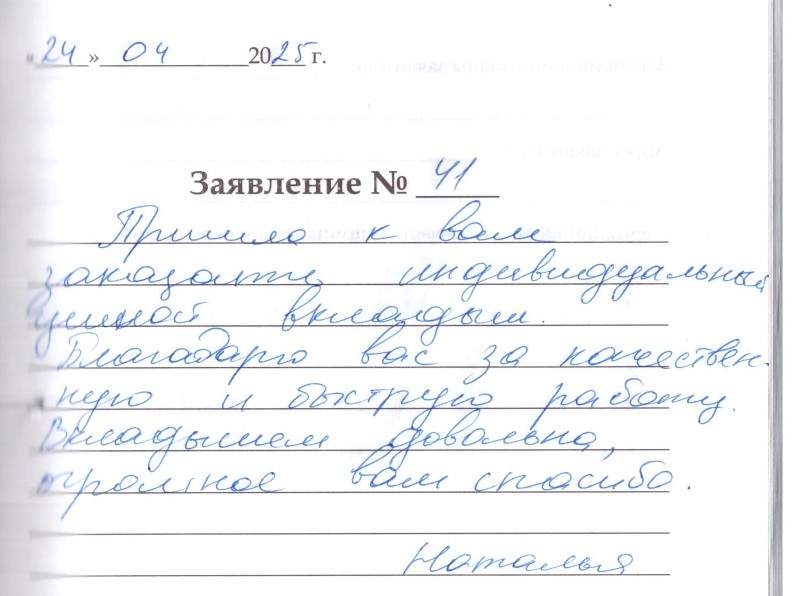 «24» 04 2025 г.
Заявление № 41
Пришла к вам
заказать индивидуальный
ушной вкладыш.
Благодарю вас за качествен-
ную и быструю работу.
Вкладышем довольна,
огромное вам спасибо.
Наталья